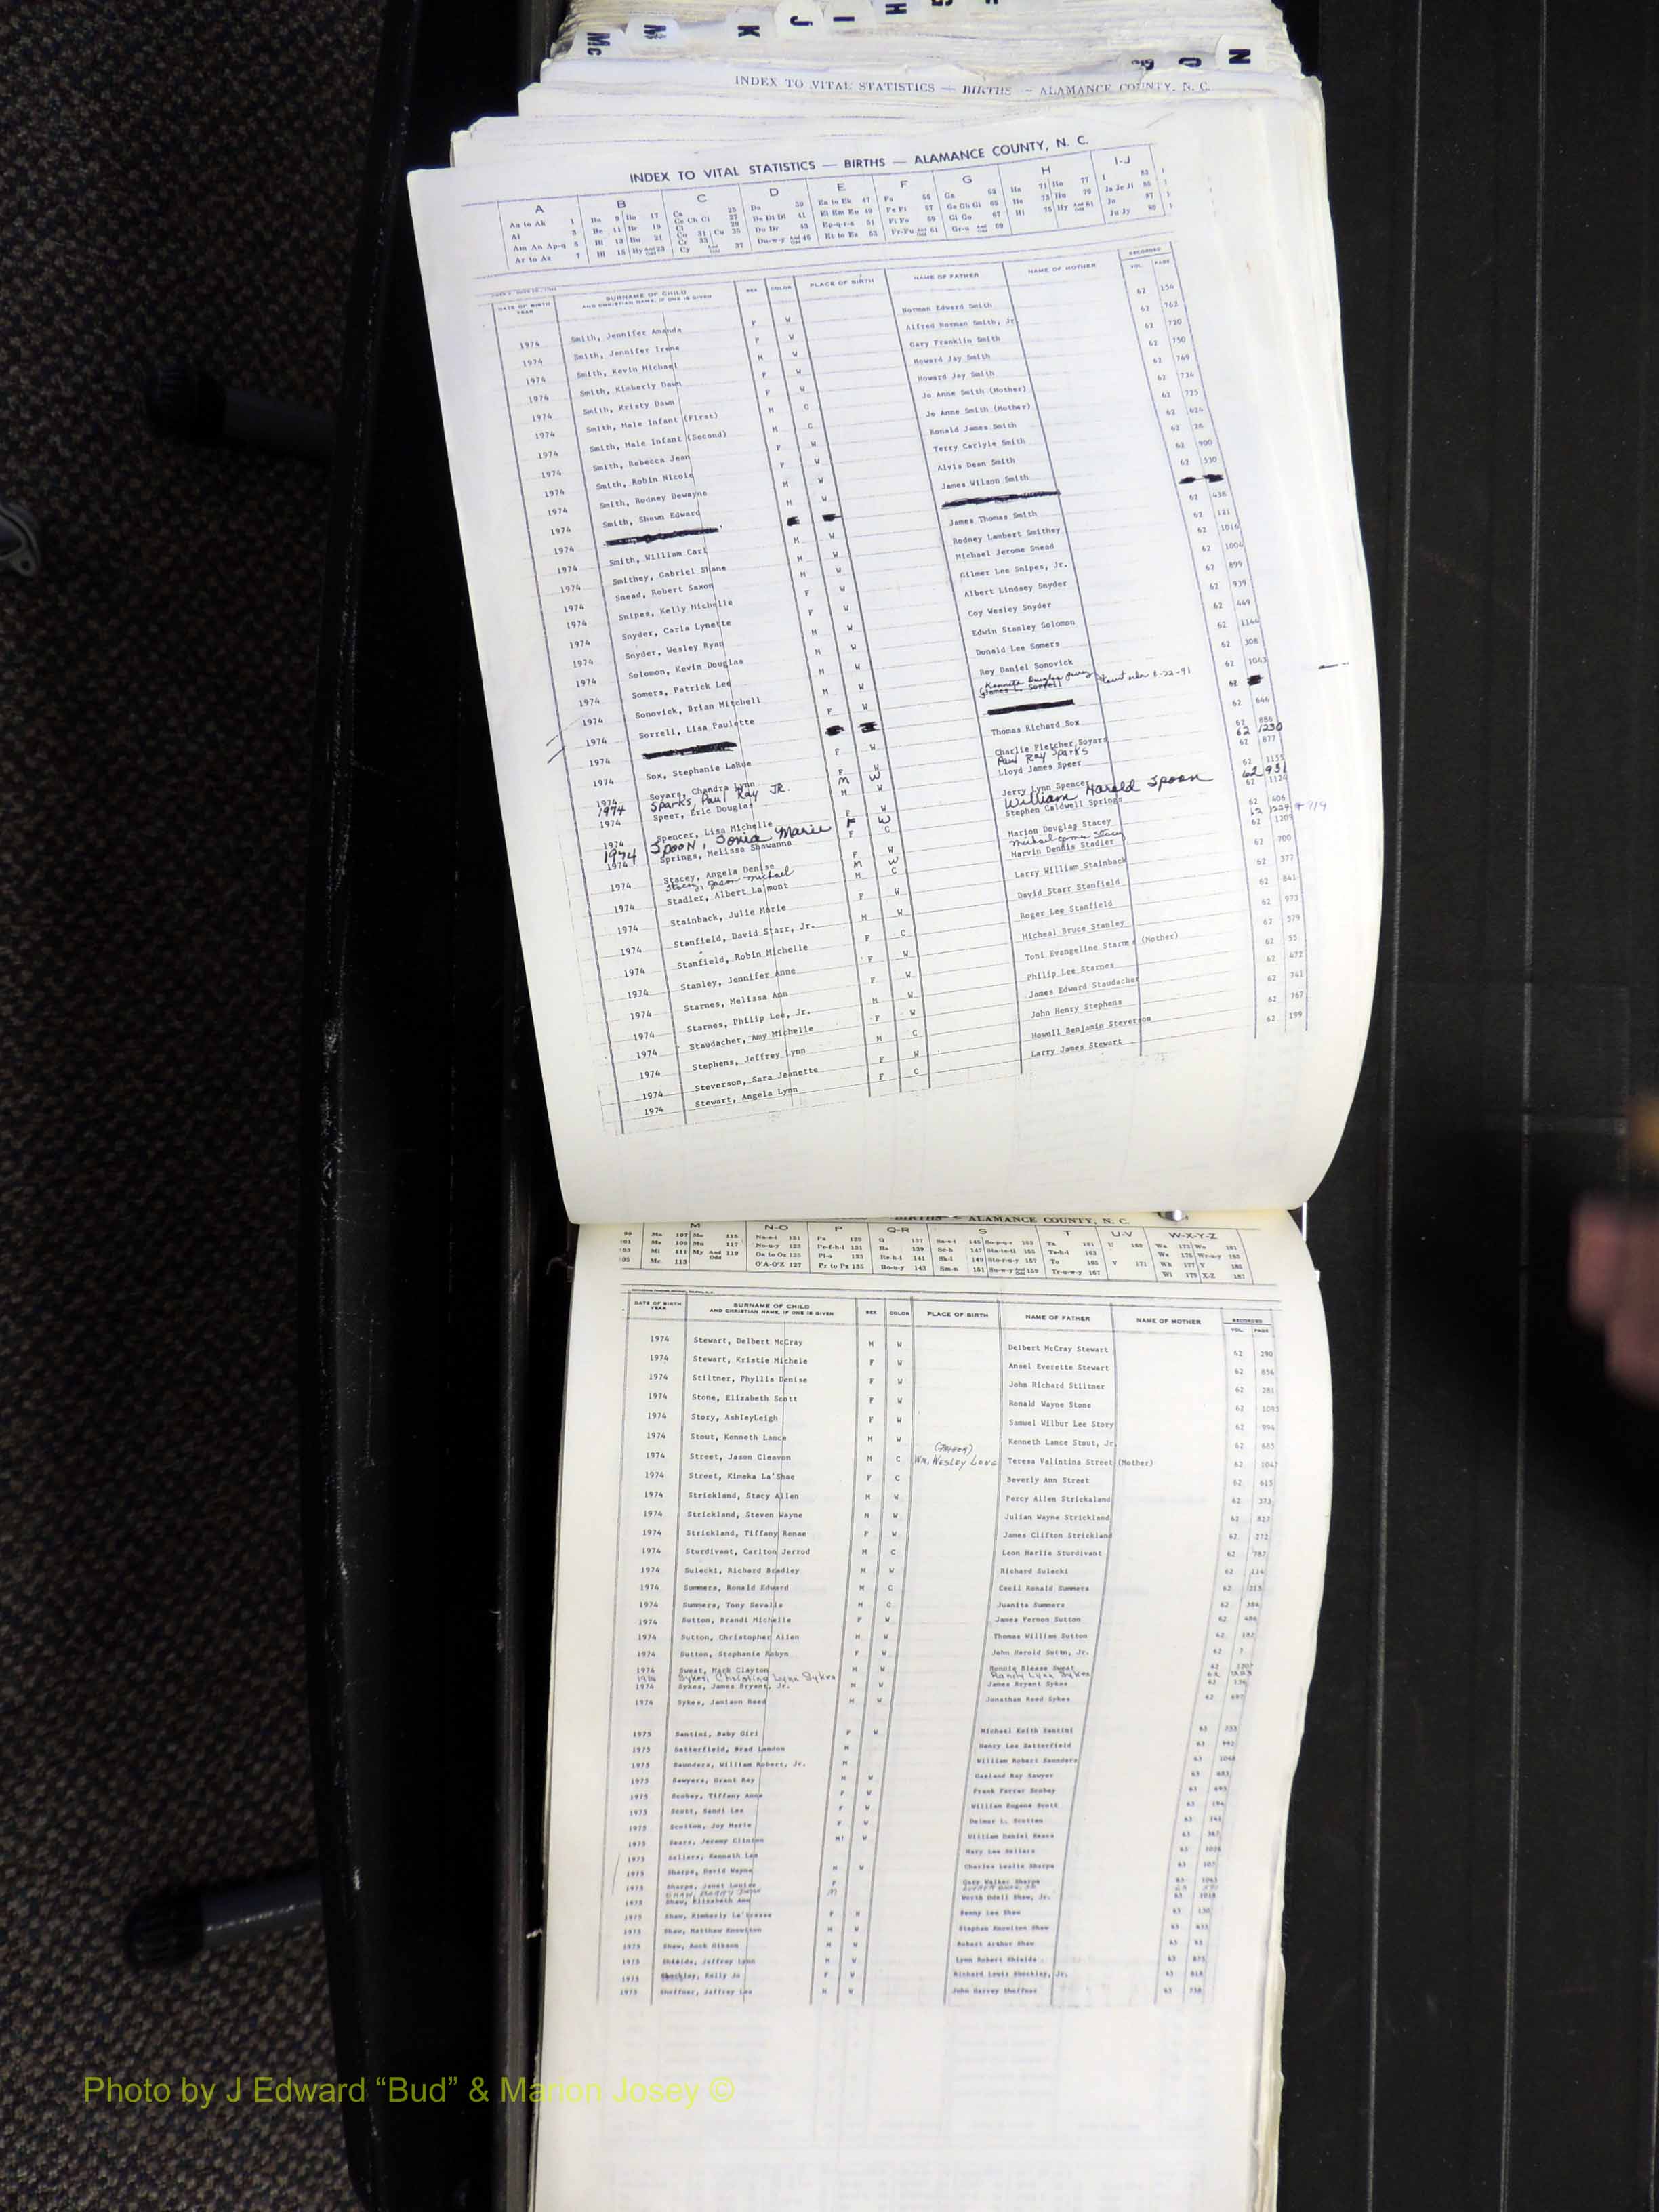 Mc M K J I H G
N
INDEX TO VITAL STATISTICS — BIRTHS — ALAMANCE COUNTY, N. C.
INDEX TO VITAL STATISTICS — BIRTHS — ALAMANCE COUNTY, N. C.
A B C D E F G H I-J
DATE OF BIRTH YEAR SURNAME OF CHILD AND CHRISTIAN NAME, IF ONE IS GIVEN SEX COLOR PLACE OF BIRTH NAME OF FATHER NAME OF MOTHER RECORDED VOL. PAGE
1974 Smith, Jennifer Amanda F W Norman Edward Smith 62 154
1974 Smith, Jennifer Irene F W Alfred Norman Smith, Jr. 62 762
1974 Smith, Kevin Michael M W Gary Franklin Smith 62 720
1974 Smith, Kimberly Dawn F W Howard Jay Smith 62 750
1974 Smith, Kristy Dawn F W Howard Jay Smith 62 749
1974 Smith, Male Infant (First) M C Jo Anne Smith (Mother) 62 724
1974 Smith, Male Infant (Second) M C Jo Anne Smith (Mother) 62 725
1974 Smith, Rebecca Jean F W Ronald James Smith 62 624
1974 Smith, Robin Nicole F W Terry Carlyle Smith 62 26
1974 Smith, Rodney Dewayne M W Alvis Dean Smith 62 900
1974 Smith, Shawn Edward M W James Wilson Smith 62 550
1974
1974 Smith, William Carl M W James Thomas Smith 62 438
1974 Smithey, Gabriel Shane M W Rodney Lambert Smithey 62 121
1974 Snead, Robert Saxon M W Michael Jerome Snead 62 1016
1974 Snipes, Kelly Michelle F W Gilmer Lee Snipes, Jr. 62 1004
1974 Snyder, Carla Lynette F W Albert Lindsey Snyder 62 899
1974 Snyder, Wesley Ryan M W Coy Wesley Snyder 62 939
1974 Solomon, Kevin Douglas M W Edwin Stanley Solomon 62 449
1974 Somers, Patrick Lee M W Donald Lee Somers 62 1144
1974 Sonovick, Brian Mitchell M W Roy Daniel Sonovick 62 308
1974 Sorrell, Lisa Paulette F W James L. Sorrell 62 1043
1974 62
1974 Sox, Stephanie LaRue F W Thomas Richard Sox 62 646
1974 Soyars, Chandra Lynn F W Charlie Fletcher Soyars 62 886
1974 Sparks, Paul Ray JR. M W Paul Ray Sparks 62 1230
1974 Speer, Eric Douglas M W Lloyd James Speer 62 877
1974 Spencer, Lisa Michelle F W Jerry Lynn Spencer 62 1155
1974 Spoon, Sonia Marie F W William Harold Spoon 62 931
1974 Springs, Melissa Shawanna F C Stephen Caldwell Springs 62 1124
1974 Stacey, Angela Denise F W Marion Douglas Stacey 62 406
Stacey, Jason Michael M W Michael Stacey 62
1974 Stadler, Albert La'mont M C Marvin Dennis Stadler 62 1207
1974 Stainback, Julie Marie F W Larry William Stainback 62 700
1974 Stanfield, David Starr, Jr. M W David Starr Stanfield 62 377
1974 Stanfield, Robin Michelle F C Roger Lee Stanfield 62 841
1974 Stanley, Jennifer Anne F W Micheal Bruce Stanley 62 973
1974 Starnes, Melissa Ann F W Toni Evangeline Starnes (Mother) 62 579
1974 Starnes, Philip Lee, Jr. M W Philip Lee Starnes 62 55
1974 Staudacher, Amy Michelle F W James Edward Staudacher 62 472
1974 Stephens, Jeffrey Lynn M C John Henry Stephens 62 741
1974 Steverson, Sara Jeanette F W Howell Benjamin Steverson 62 767
1974 Stewart, Angela Lynn F C Larry James Stewart 62 199
BIRTHS — ALAMANCE COUNTY, N. C.
M N-O P Q-R S T U-V W-X-Y-Z
DATE OF BIRTH YEAR SURNAME OF CHILD AND CHRISTIAN NAME, IF ONE IS GIVEN SEX COLOR PLACE OF BIRTH NAME OF FATHER NAME OF MOTHER RECORDED VOL. PAGE
1974 Stewart, Delbert McCray M W Delbert McCray Stewart 62 290
1974 Stewart, Kristie Michele F W Ansel Everette Stewart 62 856
1974 Stiltner, Phyllis Denise F W John Richard Stiltner 62 281
1974 Stone, Elizabeth Scott F W Ronald Wayne Stone 62 1095
1974 Story, AshleyLeigh F W Samuel Wilbur Lee Story 62 994
1974 Stout, Kenneth Lance M W Kenneth Lance Stout, Jr. 62 683
1974 Street, Jason Cleavon M C (FATHER) Wm. Wesley Long Teresa Valintina Street (Mother) 62 1042
1974 Street, Kimeka La'Shae F C Beverly Ann Street 62 615
1974 Strickland, Stacy Allen M W Percy Allen Strickaland 62 373
1974 Strickland, Steven Wayne M W Julian Wayne Strickland 62 827
1974 Strickland, Tiffany Renae F W James Clifton Strickland 62 272
1974 Sturdivant, Carlton Jerrod M C Leon Harlie Sturdivant 62 787
1974 Sulecki, Richard Bradley M W Richard Sulecki 62 114
1974 Summers, Ronald Edward M C Cecil Ronald Summers 62 213
1974 Summers, Tony Sevalia M C Juanita Summers 62 384
1974 Sutton, Brandi Michelle F W James Vernon Sutton 62 486
1974 Sutton, Christopher Allen M W Thomas William Sutton 62 182
1974 Sutton, Stephanie Robyn F W John Harold Sutton, Jr. 62 7
1974 Sweat, Mark Clayton M W Ronnie Blease Sweat 62 1207
1974 Sykes, Christina Lynn Sykes Randy Lynn Sykes 62
1974 Sykes, James Bryant, Jr. M W James Bryant Sykes 62 136
1974 Sykes, Jamison Reed M W Jonathan Reed Sykes 62 697
1975 Santini, Baby Girl F W Michael Keith Santini 63 353
1975 Satterfield, Brad Landon M Henry Lee Satterfield 63 992
1975 Saunders, William Robert, Jr. M William Robert Saunders 63 1048
1975 Sawyers, Grant Ray M W Garland Ray Sawyer 63 483
1975 Scobey, Tiffany Anne F W Frank Farrar Scobey 63 695
1975 Scott, Sandi Lee F W William Eugene Scott 63 194
1975 Scotton, Joy Marie F W Delmar L. Scotten 63 141
1975 Sears, Jeremy Clinton M W William Daniel Sears 63 367
1975 Sellars, Kenneth Lee Mary Lee Sellars 63 1026
1975 Sharpe, David Wayne M W Charles Leslie Sharpe 63 107
1975 Sharpe, Janet Louise F Gary Walker Sharpe 63 1043
1975 Shaw, Elizabeth Ann Worth Odell Shaw, Jr. 63 1018
1975 Shaw, Kimberly La'tresse F N Benny Lee Shaw 63 130
1975 Shaw, Matthew Knowlton M W Stephen Knowlton Shaw 63 433
1975 Shaw, Rock Gibson M W Robert Arthur Shaw 63 93
1975 Shields, Jeffrey Lynn M W Lynn Robert Shields 63 875
1975 Shockley, Kelly Jo F W Richard Lewis Shockley, Jr. 63 818
1975 Shoffner, Jeffrey Lee M W John Harvey Shoffner 63 738
Photo by J Edward “Bud” & Marion Josey ©